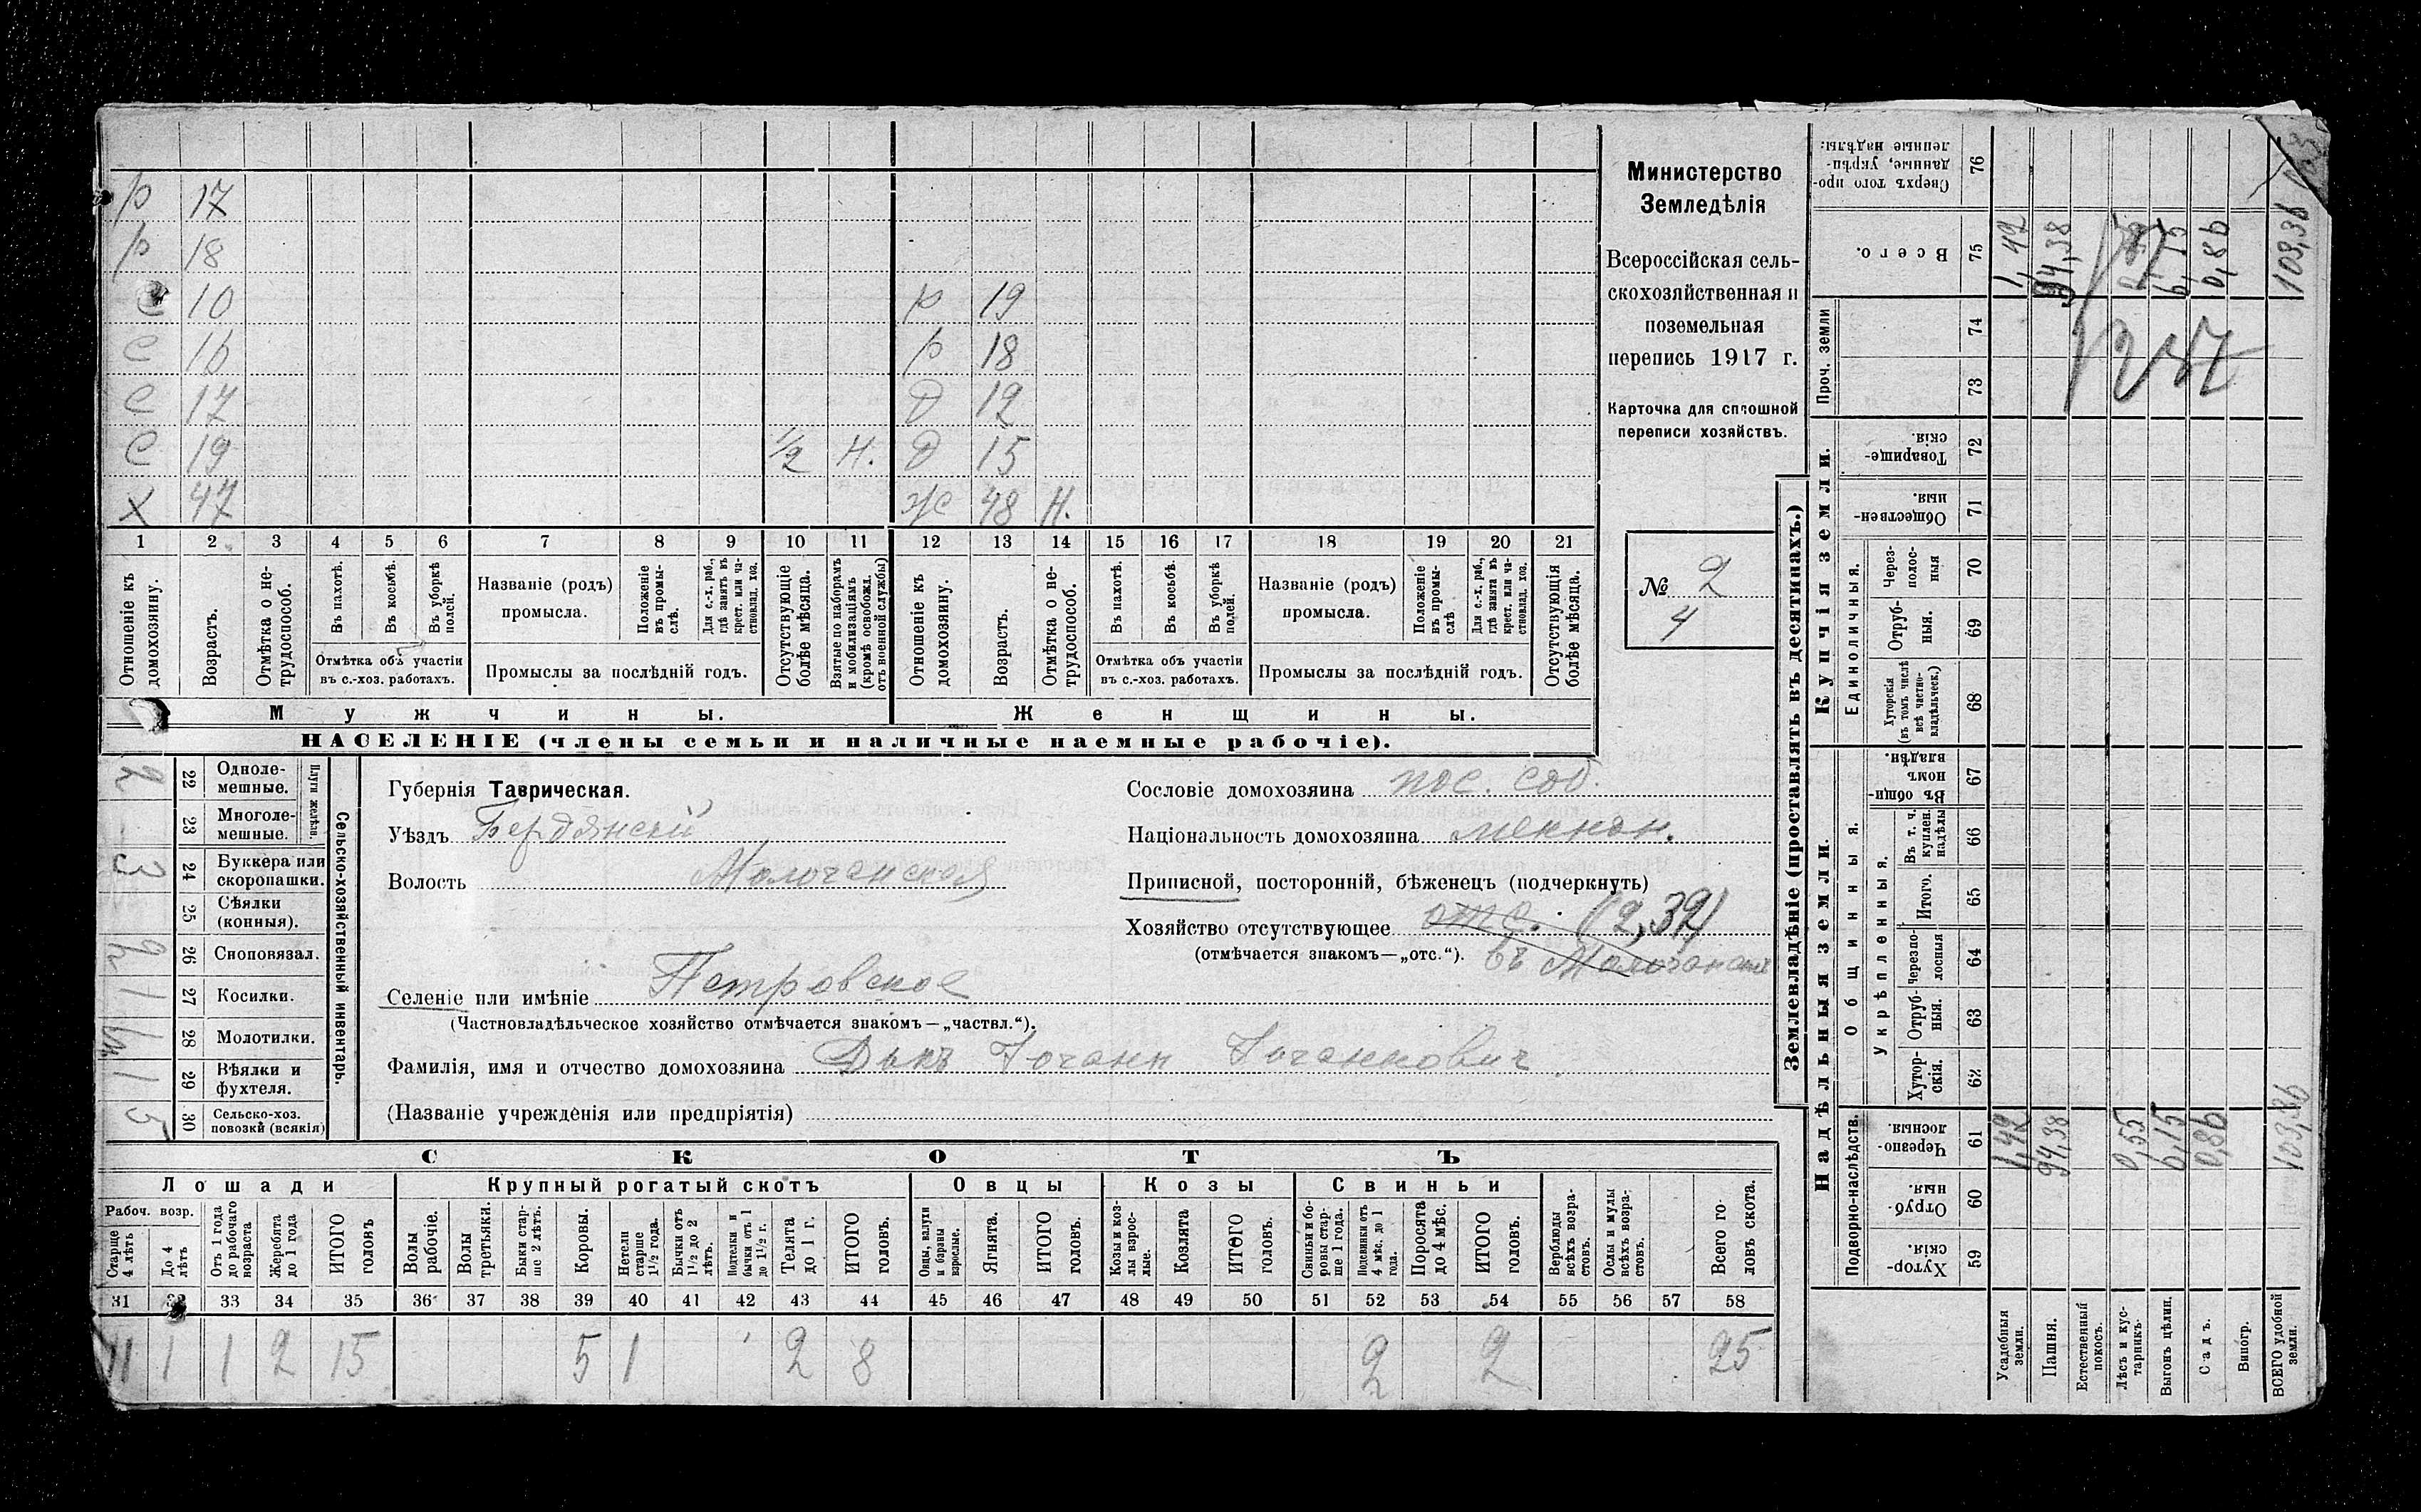 р 17
р 18
с 10
с 16 р 19
с 17 р 18
с 19 ½ н. д 12
д 15
х 47 ж 48 н.
1 2 3 4 5 6 7 8 9 10 11 12 13 14 15 16 17 18 19 20 21
Отношеніе къ домохозяину.
Возрастъ.
Отмѣтка о не-трудоспособ.
Въ пахотѣ.
Въ косьбѣ.
Въ уборкѣ полей.
Отмѣтка объ участіи
въ с.-хоз. работахъ.
Названіе (родъ)
промысла.
Положеніе въ промы-слѣ.
Для с.-х. раб., гдѣ занятъ въ крест. или ча-стновлад. хоз.
Промыслы за послѣдній годъ.
Отсутствующіе болѣе мѣсяца.
Взятые по наборамъ и мобилизаціямъ (кромѣ освобожд. отъ военной службы)
Отношеніе къ домохозяину.
Возрастъ.
Отмѣтка о не-трудоспособ.
Въ пахотѣ.
Въ косьбѣ.
Въ уборкѣ полей.
Отмѣтка объ участіи
въ с.-хоз. работахъ.
Названіе (родъ)
промысла.
Положеніе въ промы-слѣ
Для с.-х. раб., гдѣ занята въ крест. или ча-стновлад. хоз.
Промыслы за послѣдній годъ.
Отсутствующія болѣе мѣсяца.
Мужчины.
Женщины.
НАСЕЛЕНІЕ (члены семьи и наличные наемные рабочіе).
Министерство
Земледѣлія
Всероссійская сель-
скохозяйственная и
поземельная
перепись 1917 г.
Карточка для сплошной
переписи хозяйствъ.
№ 2
4
Сельско-хозяйственный инвентарь.
Плуги желѣзн.
22 Однолемешные. 2
23 Многолемешные. -
24 Буккера или скоропашки. 3
25 Сѣялки (конныя).
26 Сноповязал. 2
27 Косилки. 1
28 Молотилки.
29 Вѣялки и фухтеля. 1
30 Сельско-хоз. повозки (всякія) 5
Губернія Таврическая.
Уѣздъ Бердянскій
Волость Молочанская
Селеніе или имѣніе Петровское
(Частновладѣльческое хозяйство отмѣчается знакомъ—„частвл.“).
Фамилія, имя и отчество домохозяина Дикъ Іоганн Іоганнович
(Названіе учрежденія или предпріятія)
Сословіе домохозяина пос. соб.
Національность домохозяина меннон.
Приписной, посторонній, бѣженецъ (подчеркнуть)
Хозяйство отсутствующее отс. (2,39)
(отмѣчается знакомъ—„отс.“). въ Молочанскѣ
СКОТЪ
Лошади
Крупный рогатый скотъ
Овцы
Козы
Свиньи
Рабоч. возр.
Старше 4 лѣтъ
До 4 лѣтъ
Отъ 1 года до рабочаго возраста
Жеребята до 1 года
ИТОГО головъ
Волы рабочіе.
Волы третьяки.
Быки стар-ше 2 лѣтъ.
Коровы.
Нетели старше 1½ года.
Бычки отъ 1½ до 2 лѣтъ.
Подтелки и бычки отъ 1 до 1½ г.
Телята до 1 г.
ИТОГО головъ.
Овцы, валухи и бараны взрослые.
Ягнята.
ИТОГО головъ.
Козы и коз-лы взрос-лые.
Козлята
ИТОГО головъ.
Свиньи и бо-ровы стар-ше 1 года.
Подсвинки отъ 4 мѣс. до 1 года.
Поросята до 4 мѣс.
ИТОГО головъ.
Верблюды всѣхъ возра-стовъ.
Ослы и мулы всѣхъ возра-стовъ.
Всего го-ловъ скота.
31 32 33 34 35 36 37 38 39 40 41 42 43 44 45 46 47 48 49 50 51 52 53 54 55 56 57 58
11 1 1 2 15 5 1 2 8 2 2 25
Землевладѣніе (проставлять въ десятинахъ.)
Надѣльныя земли.
Купчія земли.
Проч. земли
Подворно-наслѣдств.
Общинныя.
Укрѣпленныя.
Единоличныя.
59 Хутор-скія.
60 Отруб-ныя.
61 Черезпо-лосныя.
62 Хутор-скія.
63 Отруб-ныя.
64 Черезпо-лосныя
65 Итого.
66 Въ т. ч. куплен. надѣлы
67 Въ общин-номъ владѣн.
68 Хуторскія (въ томъ числѣ всѣ частно-владѣльческ.)
69 Отруб-ныя.
70 Через-полос-ныя
71 Обществен-ныя.
72 Товарище-скія.
73
74
75 Всего.
76 Сверхъ того про-данные, укрѣп-ленные надѣлы:
Усадебныя земли. 1,42 1,42
Пашня. 94,38 94,38
Естественный покосъ.
Лѣсъ и кус-тарникъ. 0,55
Выгонъ цѣлин. 6,15 6,15
Садъ. 0,86 0,86
Виногр.
ВСЕГО удобной земли. 103,36 103,36